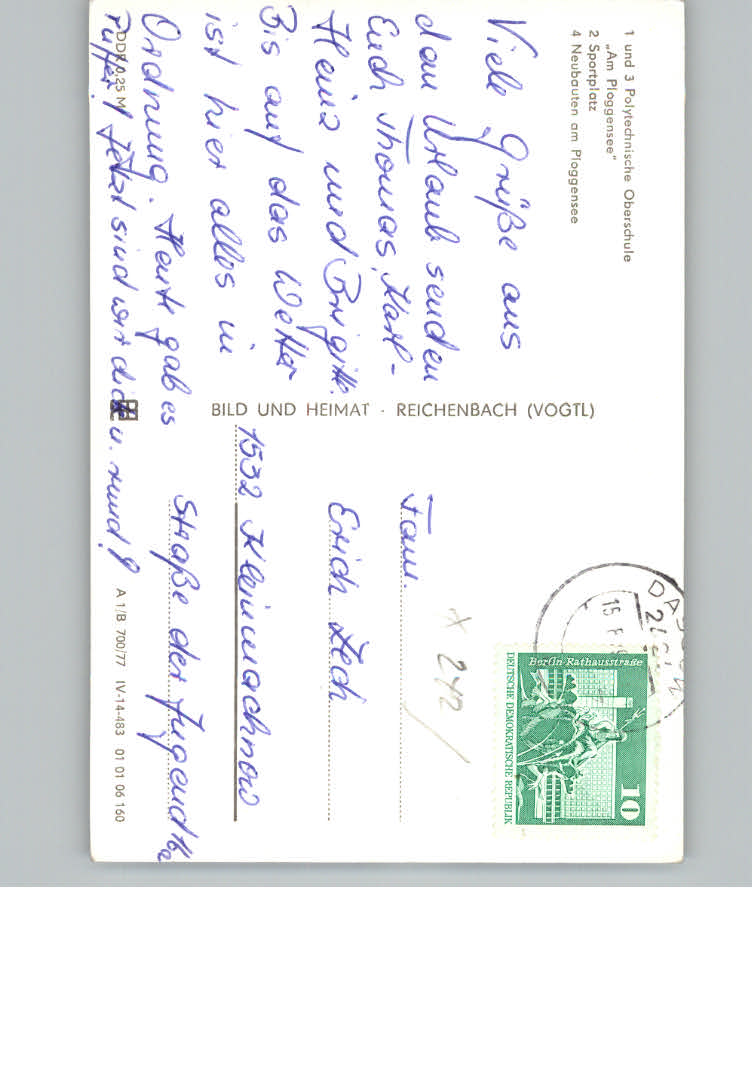 1 und 3 Polytechnische Oberschule
„Am Ploggensee“
2 Sportplatz
4 Neubauten am Ploggensee
Viele Grüße aus
dem Urlaub senden
Euch Thomas, Karl-
Heinz und Brigitte.
Bis auf das Wetter
ist hier alles in
Ordnung. Heute gab es
Puffer! Jetzt sind wir dick u. rund!
DDR 0,25 M
BILD UND HEIMAT · REICHENBACH (VOGTL)
Fam.
Erich Zech
1532 Kleinmachnow
Straße der Jugend 16a
x 242
A 1/B 700/77 IV-14-483 01 01 06 160
Berlin-Rathausstraße
10
DEUTSCHE DEMOKRATISCHE REPUBLIK
15